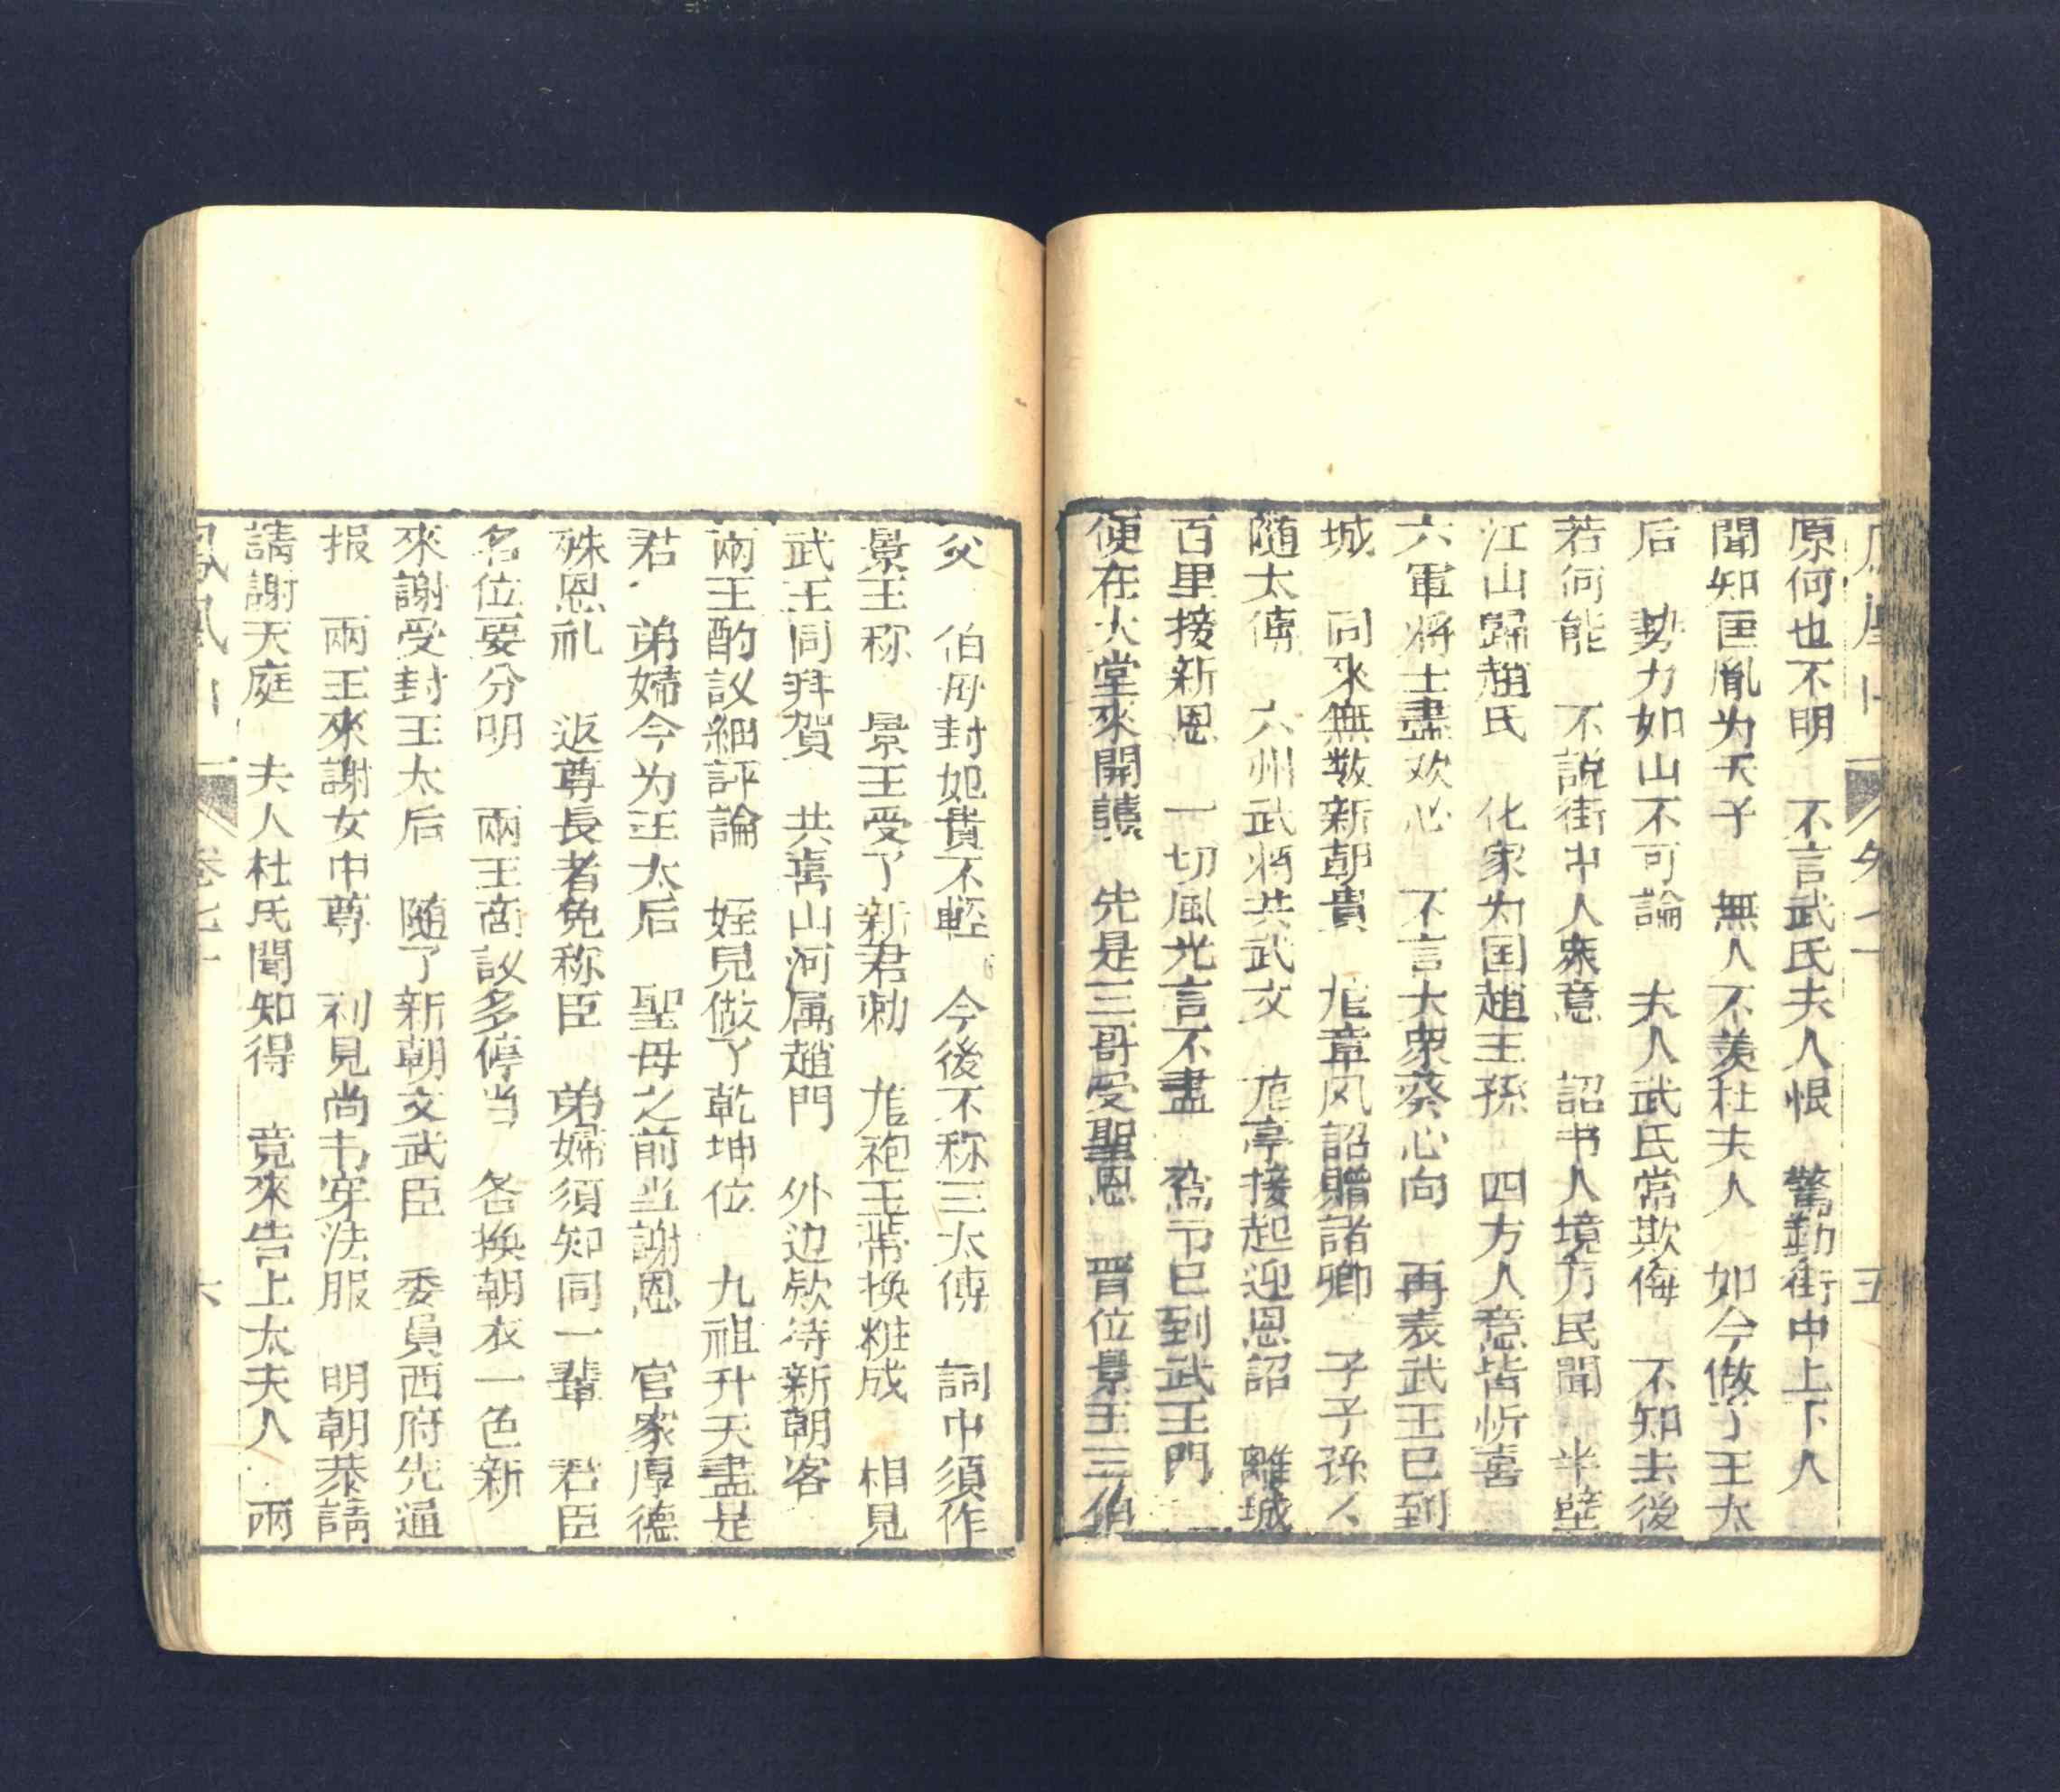 原何也不明　不言武氏夫人恨　驚動街中上下人
聞知匡胤为天子　無人不羡杜夫人　如今做了王太
后　势力如山不可論　夫人武氏常欺侮　不知去後
若何能　不說街中人衆意　詔书人境万民聞　半壁
江山歸趙氏　化家为国趙王孫　四方人意皆忻喜
六軍将士盡欢心　不言大衆葵心向　再表武王已到
城　同來無数新朝貴　章风詔贈諸卿　子子孫人
随太傅　六州武将共武文　亭接起迎恩詔　離城
百里接新恩　一切風光言不盡　已到武王門
便在大堂來開讀　先是三哥受聖恩　晋位景王三伯
父　伯母封妃貴不輕　今後不称三太傅　詞中須作
景王称　景王受了新君勅　袍玉带换粧成　相見
武王同拜賀　共喜山河属趙門　外边欵待新朝客
兩王酌议細評論　姪兒做了乾坤位　九祖升天盡是
君　弟婦今为王太后　聖母之前当謝恩　官家厚德
殊恩礼　返尊長者免称臣　弟婦須知同一輩　君臣
名位要分明　兩王商议多停当　各换朝衣一色新
來謝受封王太后　随了新朝文武臣　委員西府先通
报　兩王來謝女中尊　利見尚书穿法服　明朝恭請
請謝天庭　夫人杜氏聞知得　竟來告上太夫人　兩
鳳凰山　卷七十　六